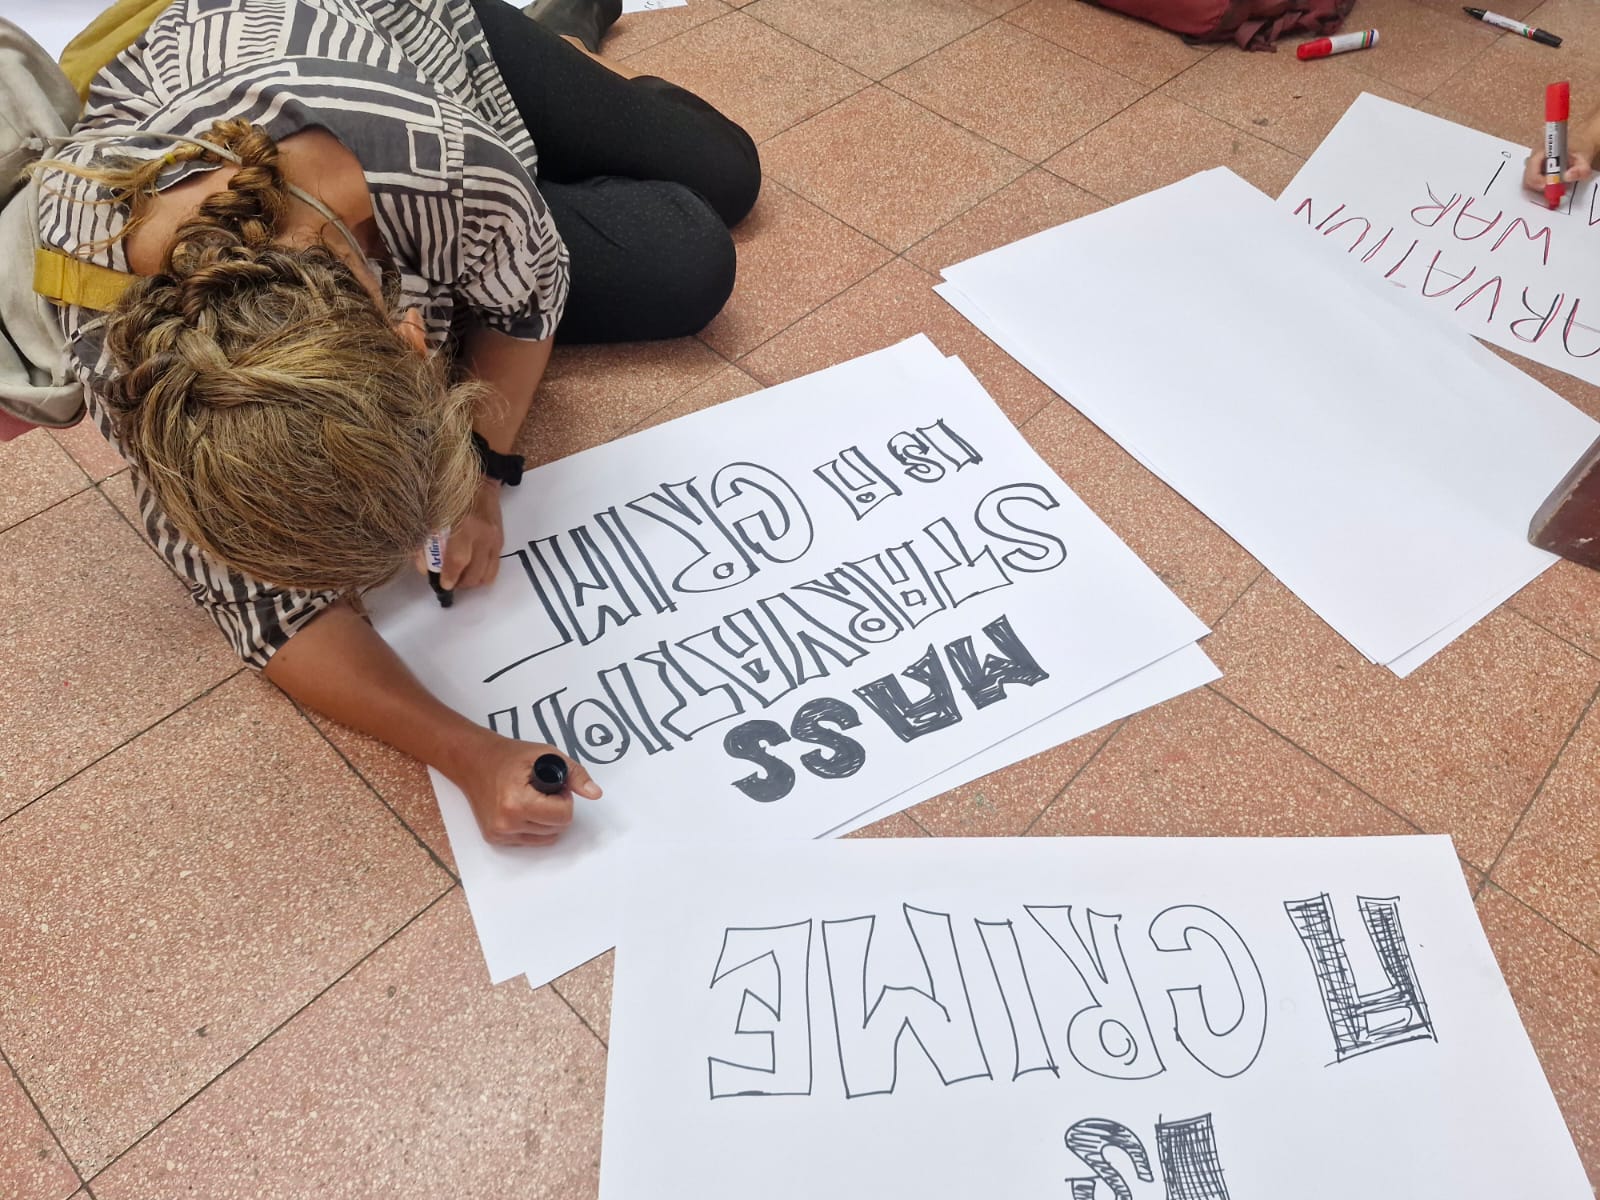 MASS
STARVATION
IS A CRIM
IS
A CRIME
ARVATION
WAR
Artline